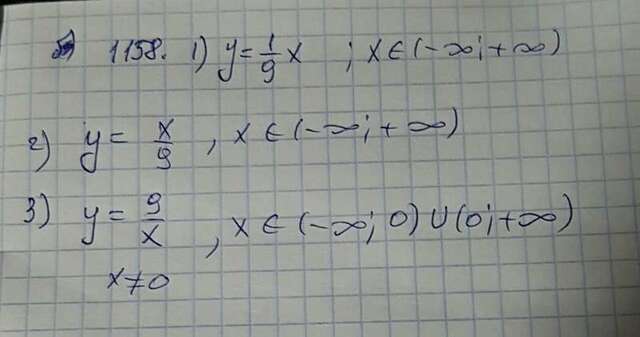 1158. 1) y = 1/9 x ; x ∈ (-∞; +∞)
2) y = x/9 , x ∈ (-∞; +∞)
3) y = 9/x , x ∈ (-∞; 0) ∪ (0; +∞)
x ≠ 0